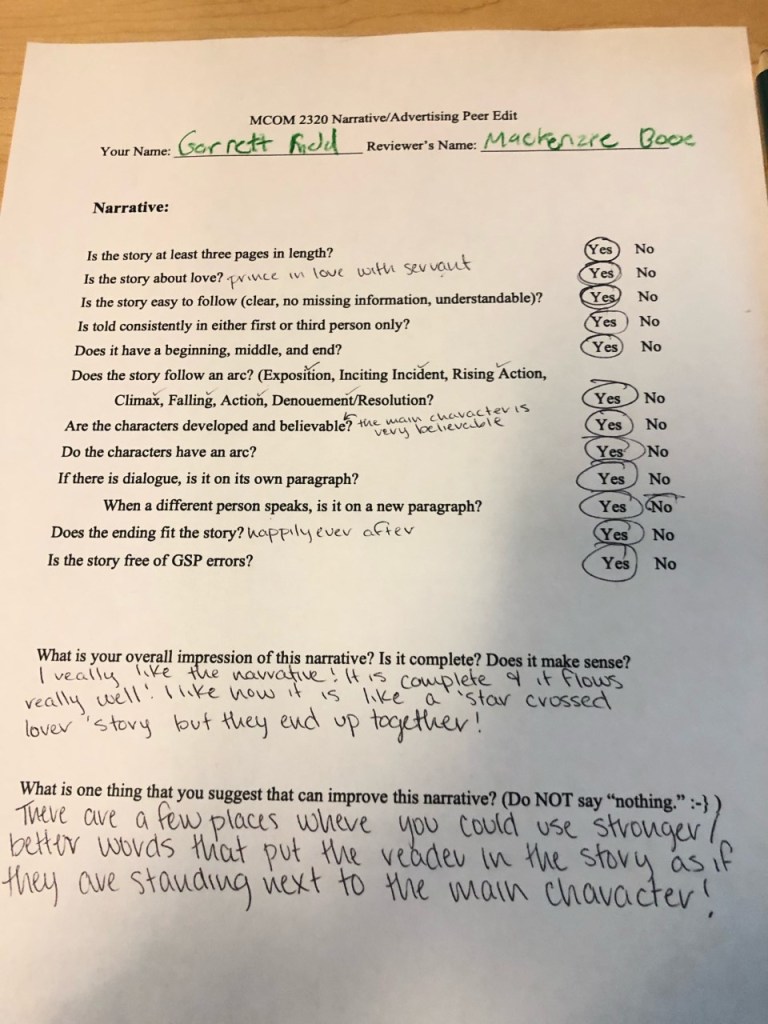 MCOM 2320 Narrative/Advertising Peer Edit
Your Name: Garrett Reviewer's Name: Mackenzie
Narrative:
Is the story at least three pages in length? Yes No
Is the story about love? prince in love with servant Yes No
Is the story easy to follow (clear, no missing information, understandable)? Yes No
Is told consistently in either first or third person only? Yes No
Does it have a beginning, middle, and end? Yes No
Does the story follow an arc? (Exposition, Inciting Incident, Rising Action,
Climax, Falling, Action, Denouement/Resolution? Yes No
Are the characters developed and believable? the main character is very believable Yes No
Do the characters have an arc? Yes No
If there is dialogue, is it on its own paragraph? Yes No
When a different person speaks, is it on a new paragraph? Yes No
Does the ending fit the story? happily ever after Yes No
Is the story free of GSP errors? Yes No
What is your overall impression of this narrative? Is it complete? Does it make sense?
I really like the narrative! It is complete & it flows
really well! I like how it is like a 'star crossed
lover' story but they end up together!
What is one thing that you suggest that can improve this narrative? (Do NOT say “nothing.” :-} )
There are a few places where you could use stronger/
better words that put the reader in the story as if
they are standing next to the main character!